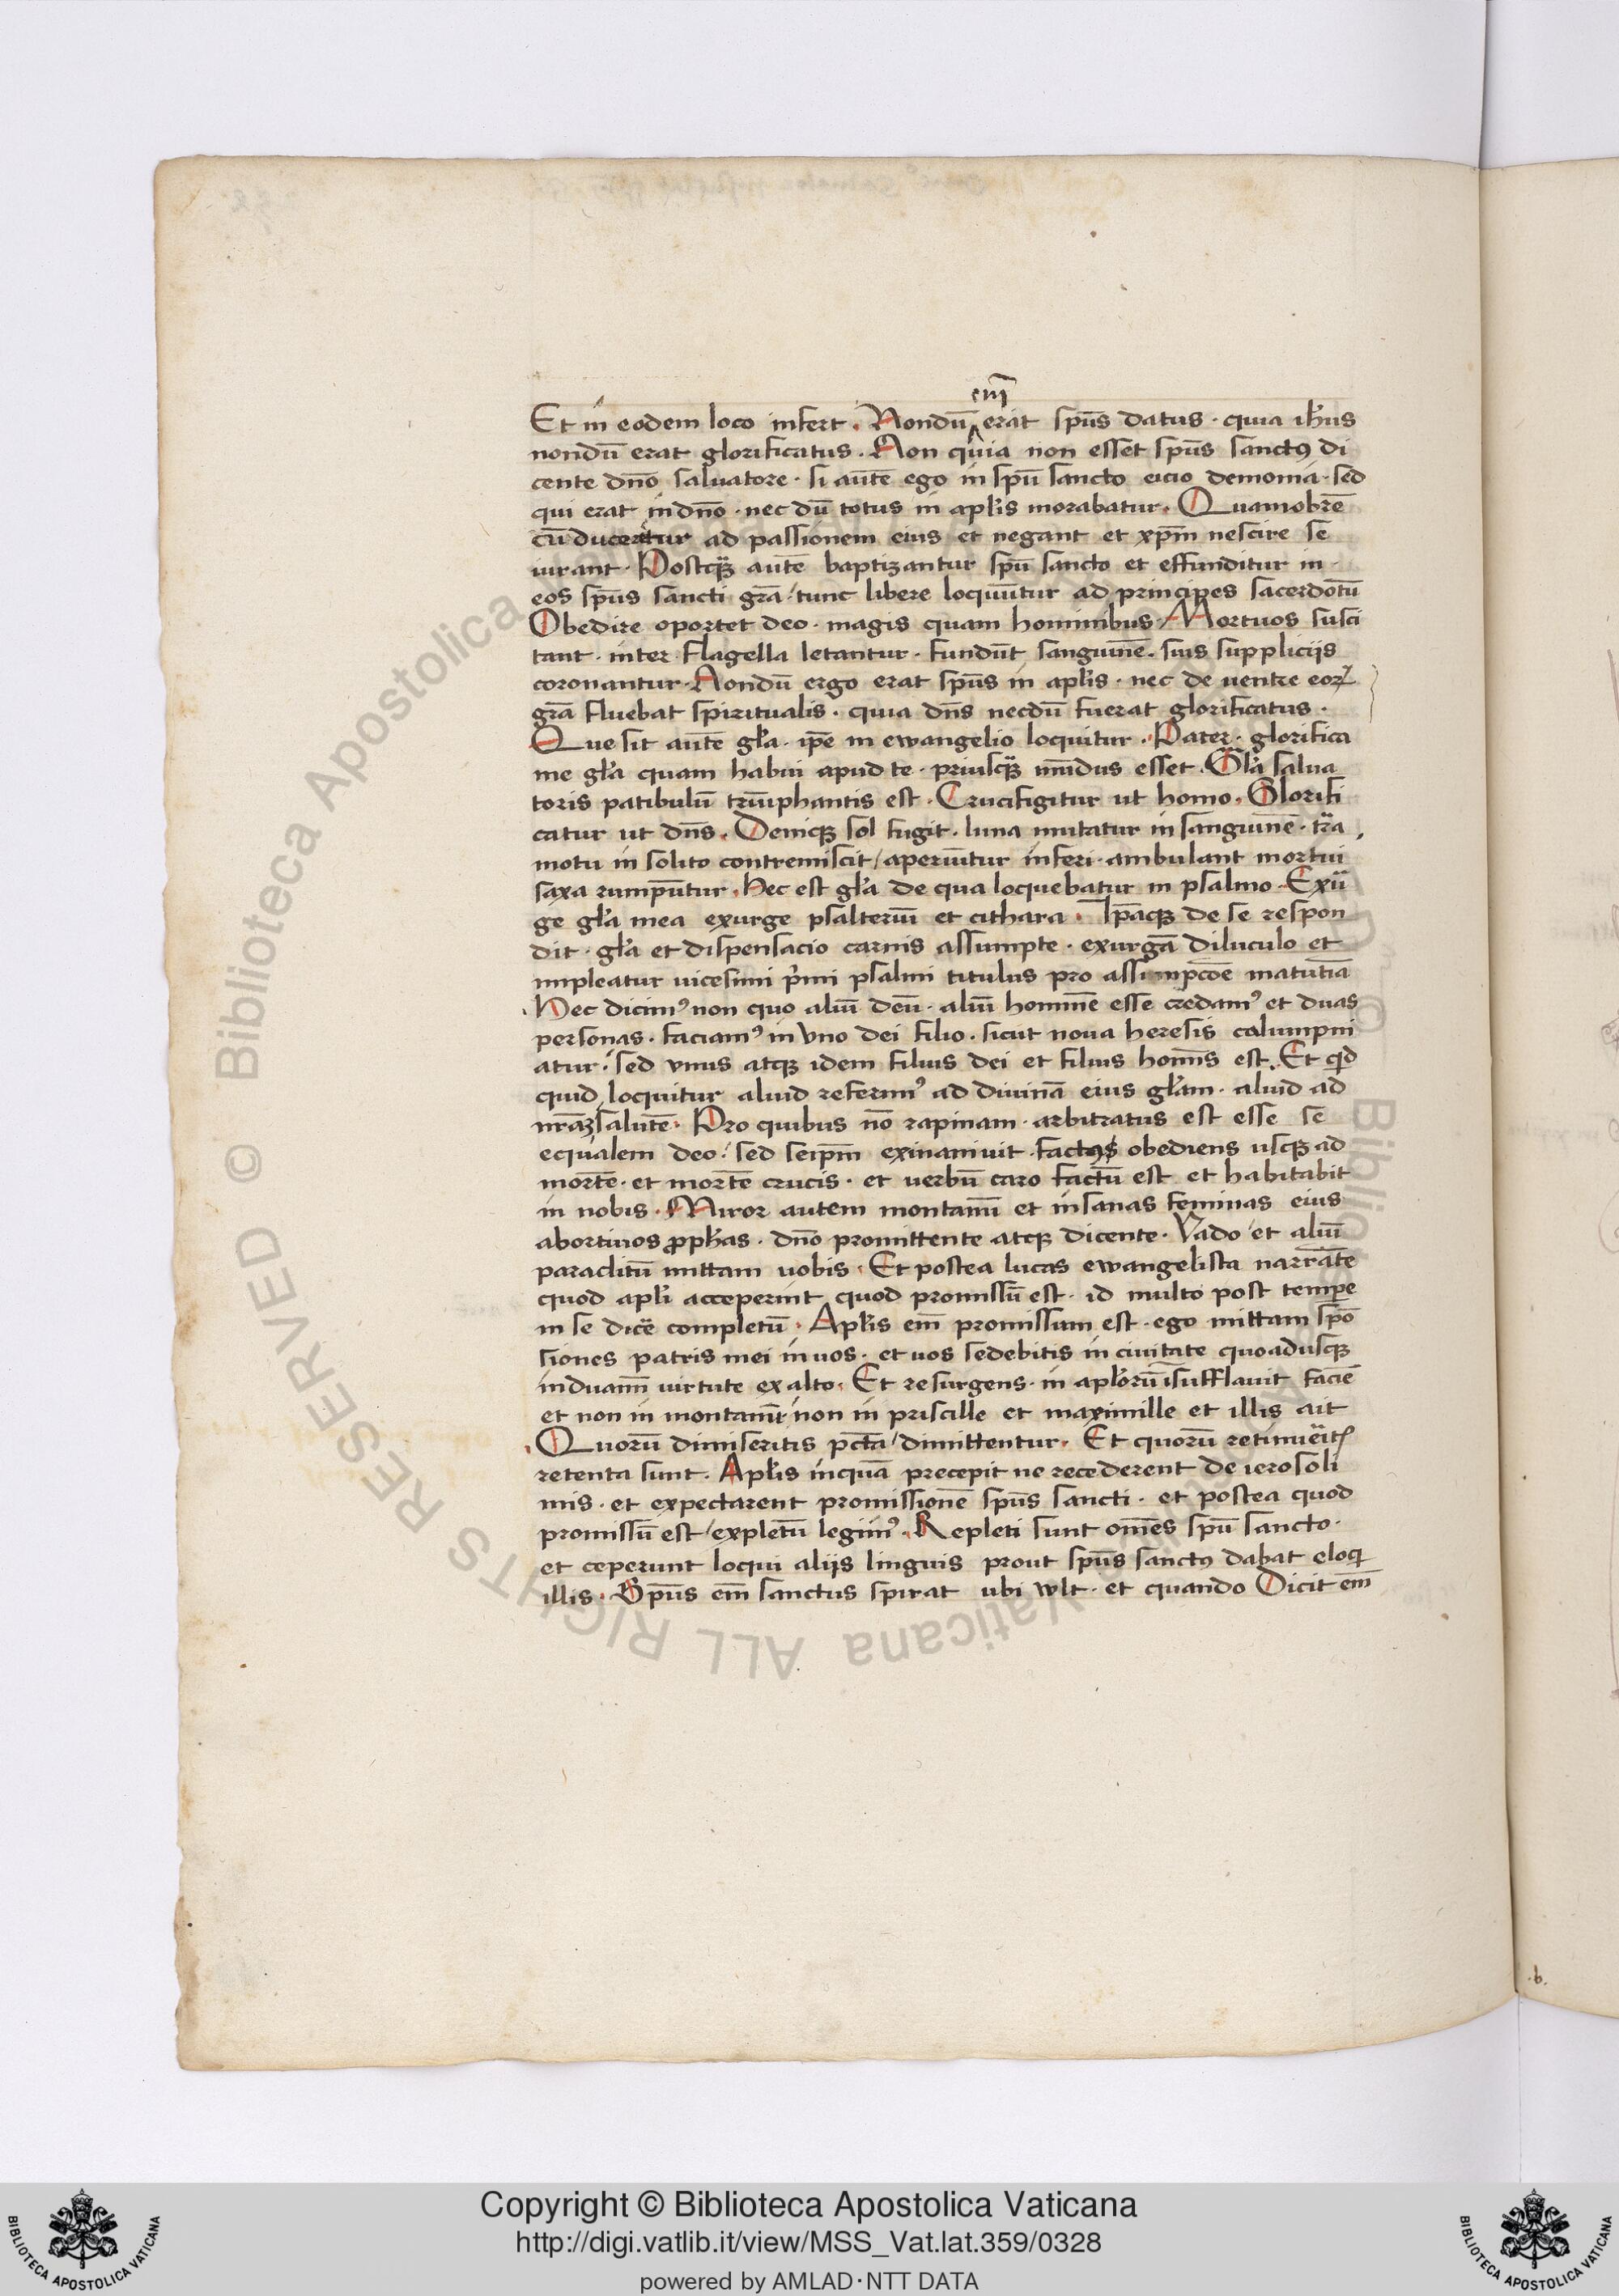 enī
Et in eodem loco infert. Nondū erat sp̄us datus · quia ih̄us
nondū erat glorificatus. Non quia non esset sp̄us sanctꝰ di
cente dn̄o salvatore · si autē ego in sp̄u sancto eicio demonia · sed
qui erat in dn̄o · nec dū totus in apl̄is morabatur. Quamobrē
cū duceretur ad passionem eius et negant et xp̄m nescire se
iurant · Postqꝫ autē baptizantur sp̄u sancto et effunditur in
eos sp̄us sancti gr̄a / tunc libere loquūtur ad principes sacerdotū
Obedire oportet deo · magis quam hominibus · Mortuos susci
tant · inter flagella letantur · fundūt sanguinē · suis suppliciis
coronantur · Nondū ergo erat sp̄us in apl̄is · nec de ventre eoꝝ
gr̄a fluebat spiritualis · quia dn̄s necdū fuerat glorificatus ·
Que sit autē gl̄a · ip̄e in ewangelio loquitur · Pater · glorifica
me gl̄a quam habui apud te · priusqꝫ mūdus esset · Gl̄a salua
toris patibulū triūphantis est · Crucifigitur ut homo · Glorifi
catur ut dn̄s · Deniqꝫ sol fugit · luna mutatur in sanguinē · tr̄a
motu in solito contremiscit / aperiūtur inferi · ambulant mortui
saxa rumpūtur · Hec est gl̄a de qua loquebatur in psalmo · Exū
ge gl̄a mea exurge psalteriū et cithara · Ip̄aqꝫ de se respon
dit · gl̄a et dispensacio carnis assumpte · exurgā diluculo et
impleatur vicesimi p̄mi psalmi titulus pro assumpcōe matutīa
Hec dicimꝰ non quo aliū deū · aliū hominē esse credamꝰ et duas
personas · faciamꝰ in vno dei filio · sicut noua heresis calumpni
atur · sed vnus atqꝫ idem filius dei et filius homīs est · Et qd̄
quid loquitur aliud referimꝰ ad diuinā eius gl̄am · aliud ad
nr̄aꝫ salutē · Pro quibus nō rapinam · arbitratus est esse se
equalem deo · sed seip̄m exinaniuit · factus obediens usqꝫ ad
mortē · et mortē crucis · et verbū caro factū est et habitabit
in nobis · Miror autem montanū et insanas feminas eius
abortivos ꝓph̄as · dn̄o promittente atqꝫ dicente · Vado et aliū
paraclitū mittam vobis · Et postea lucas ewangelista narrātē
quod apl̄i acceperint quod promissū est · id multo post temp̄e
in se dicē completū · Apl̄is em̄ promissum est · ego mittam sp̄o
siones patris mei in vos · et vos sedebitis in civitate quoadusqꝫ
induamī virtute ex alto · Et resurgens · in apl̄orū īsufflavit faciē
et non in montani · non in priscille et maximille et illis ait
Quorū dimiseritis pc̄ta / dimittentur · Et quorū retinueritꝭ
retenta sunt · Apl̄is inquā precepit ne recederent de ierosoli
mis · et expectarent promissionē sp̄us sancti · et postea quod
promissū est / expletū legimꝰ · Repleti sunt om̄es sp̄u sancto ·
et ceperunt loqui aliis linguis prout sp̄us sanctꝰ dabat eloqi
illis · Sp̄us em̄ sanctus spirat ubi wlt · et quando Dicit em̄
.b.
© Biblioteca Apostolica Vaticana ALL RIGHTS RESERVED
Copyright © Biblioteca Apostolica Vaticana
http://digi.vatlib.it/view/MSS_Vat.lat.359/0328
powered by AMLAD·NTT DATA
BIBLIOTECA APOSTOLICA VATICANA
BIBLIOTECA APOSTOLICA VATICANA